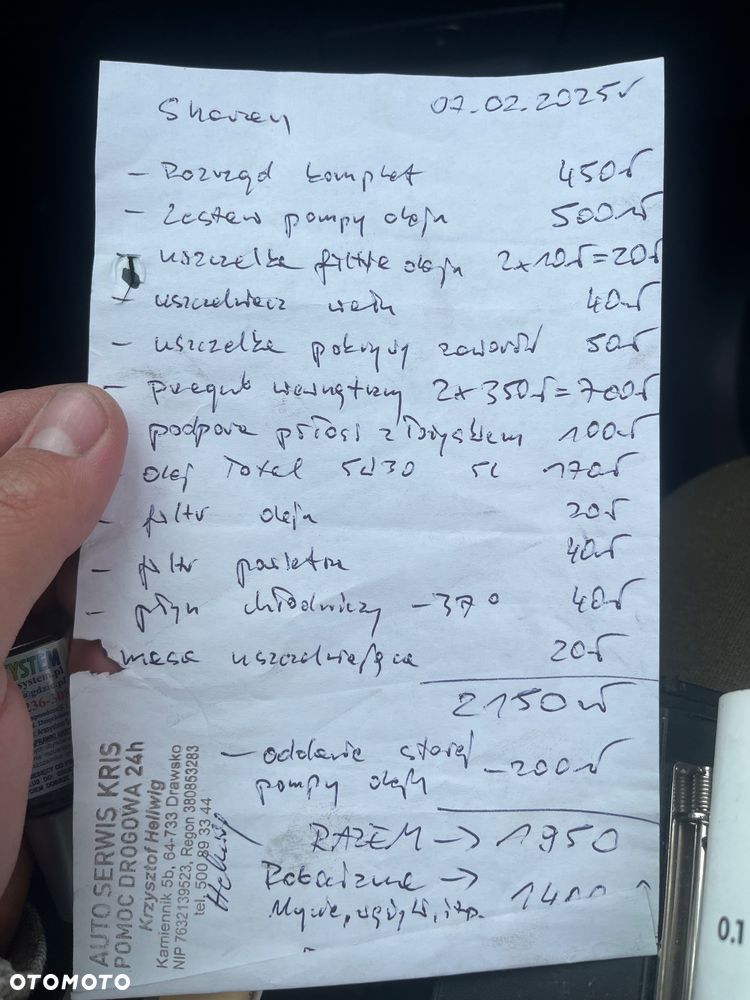 Sharan 07.02.2025r
- Rozrząd komplet 450zł
- Zestaw pompy oleju 500zł
- uszczelka filtra oleju 2x10zł=20zł
- uszczelniacz wału 40zł
- uszczelka pokrywy zaworów 50zł
- przegub wewnętrzny 2x350zł=700zł
podpora półosi z łożyskiem 100zł
- olej Total 5W30 5L 170zł
- filtr oleju 20zł
- filtr powietrza 40zł
- płyn chłodniczy -37° 40zł
masa uszczelniająca 20zł
2150zł
- oddanie starej
pompy oleju -200zł
RAZEM → 1950
Robocizna →
Mycie, wężyki, itp. 1400
AUTO SERWIS KRIS
POMOC DROGOWA 24h
Krzysztof Hellwig
Kamiennik 5b, 64-733 Drawsko
NIP 7632139523, Regon 380853283
tel. 500 89 33 44
YSTEM
0.1
OTOMOTO